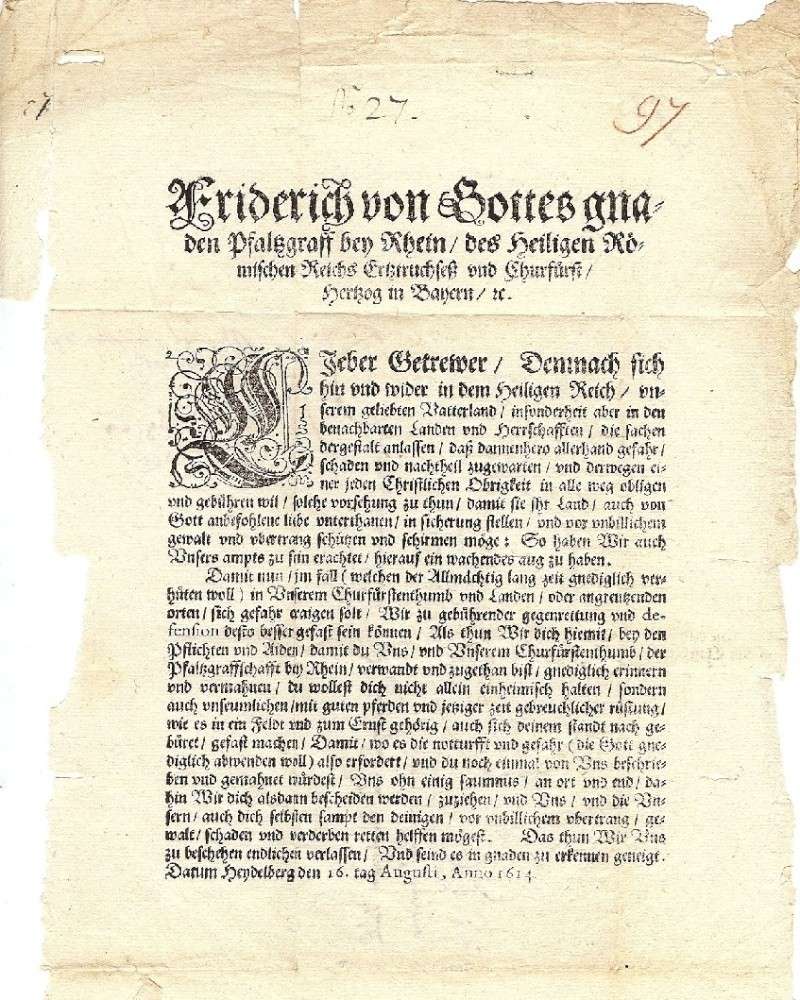 No 27.
97
27
Friderich von Gottes gna-
den Pfaltzgraff bey Rhein / des Heiligen Rö-
mischen Reichs Ertztruchseß vnd Churfürst /
Hertzog in Bayern / ꝛc.
LJeber Getrewer / Demnach sich
hin vnd wider in dem Heiligen Reich / vn-
serem geliebten Vatterland / insonderheit aber in den
benachbarten Landen vnd Herrschafften / die sachen
dergestalt anlassen / daß dannenhero allerhand gefahr /
schaden vnd nachtheil zugewarten / vnd derwegen ei-
ner jeden Christlichen Obrigkeit in alle weg obligen
vnd gebühren wil / solche vorsehung zu thun / damit sie ihr Land / auch von
Gott anbefohlene liebe vnterthanen / in sicherung stellen / vnd vor vnbillichem
gewalt vnd vbertrang schützen vnd schirmen möge: So haben Wir auch
Vnsers ampts zu sein erachtet / hierauf ein wachendes aug zu haben.
Damit nun / im fall ( welchen der Allmächtig lang zeit gnediglich ver-
hüten woll ) in Vnserem Churfürstenthumb vnd Landen / oder angrentzenden
orten / sich gefahr eraigen solt / Wir zu gebührender gegenrettung vnd de-
fension desto besser gefast sein können / Als thun Wir dich hiemit / bey den
Pflichten vnd Aiden / damit du Vns / vnd Vnserem Churfürstenthumb / der
Pfaltzgraffschafft bey Rhein / verwandt vnd zugethan bist / gnediglich erinnern
vnd vermahnen / du wollest dich nicht allein einheimisch halten / sondern
auch vnseumlichen / mit guten pferden vnd jetziger zeit gebreuchlicher rüstung /
wie es in ein Feldt vnd zum Ernst gehörig / auch sich deinem standt nach ge-
büret / gefast machen / Damit / wo es die notturfft vnd gefahr ( die Gott gne-
diglich abwenden woll ) also erfordert / vnd du noch einmal von Vns beschrie-
ben vnd gemahnet würdest / Vns ohn einig saumnus / an ort vnd end / da-
hin Wir dich alsdann bescheiden werden / zuziehen / vnd Vns / vnd die Vn-
sern / auch dich selbsten sampt den deinigen / vor vnbillichem vbertrang / ge-
walt / schaden vnd verderben retten helffen mögest. Das thun Wir Vns
zu beschehen endlichen verlassen / Vnd seind es in gnaden zu erkennen geneigt.
Datum Heydelberg den 16. tag Augusti, Anno 1614.